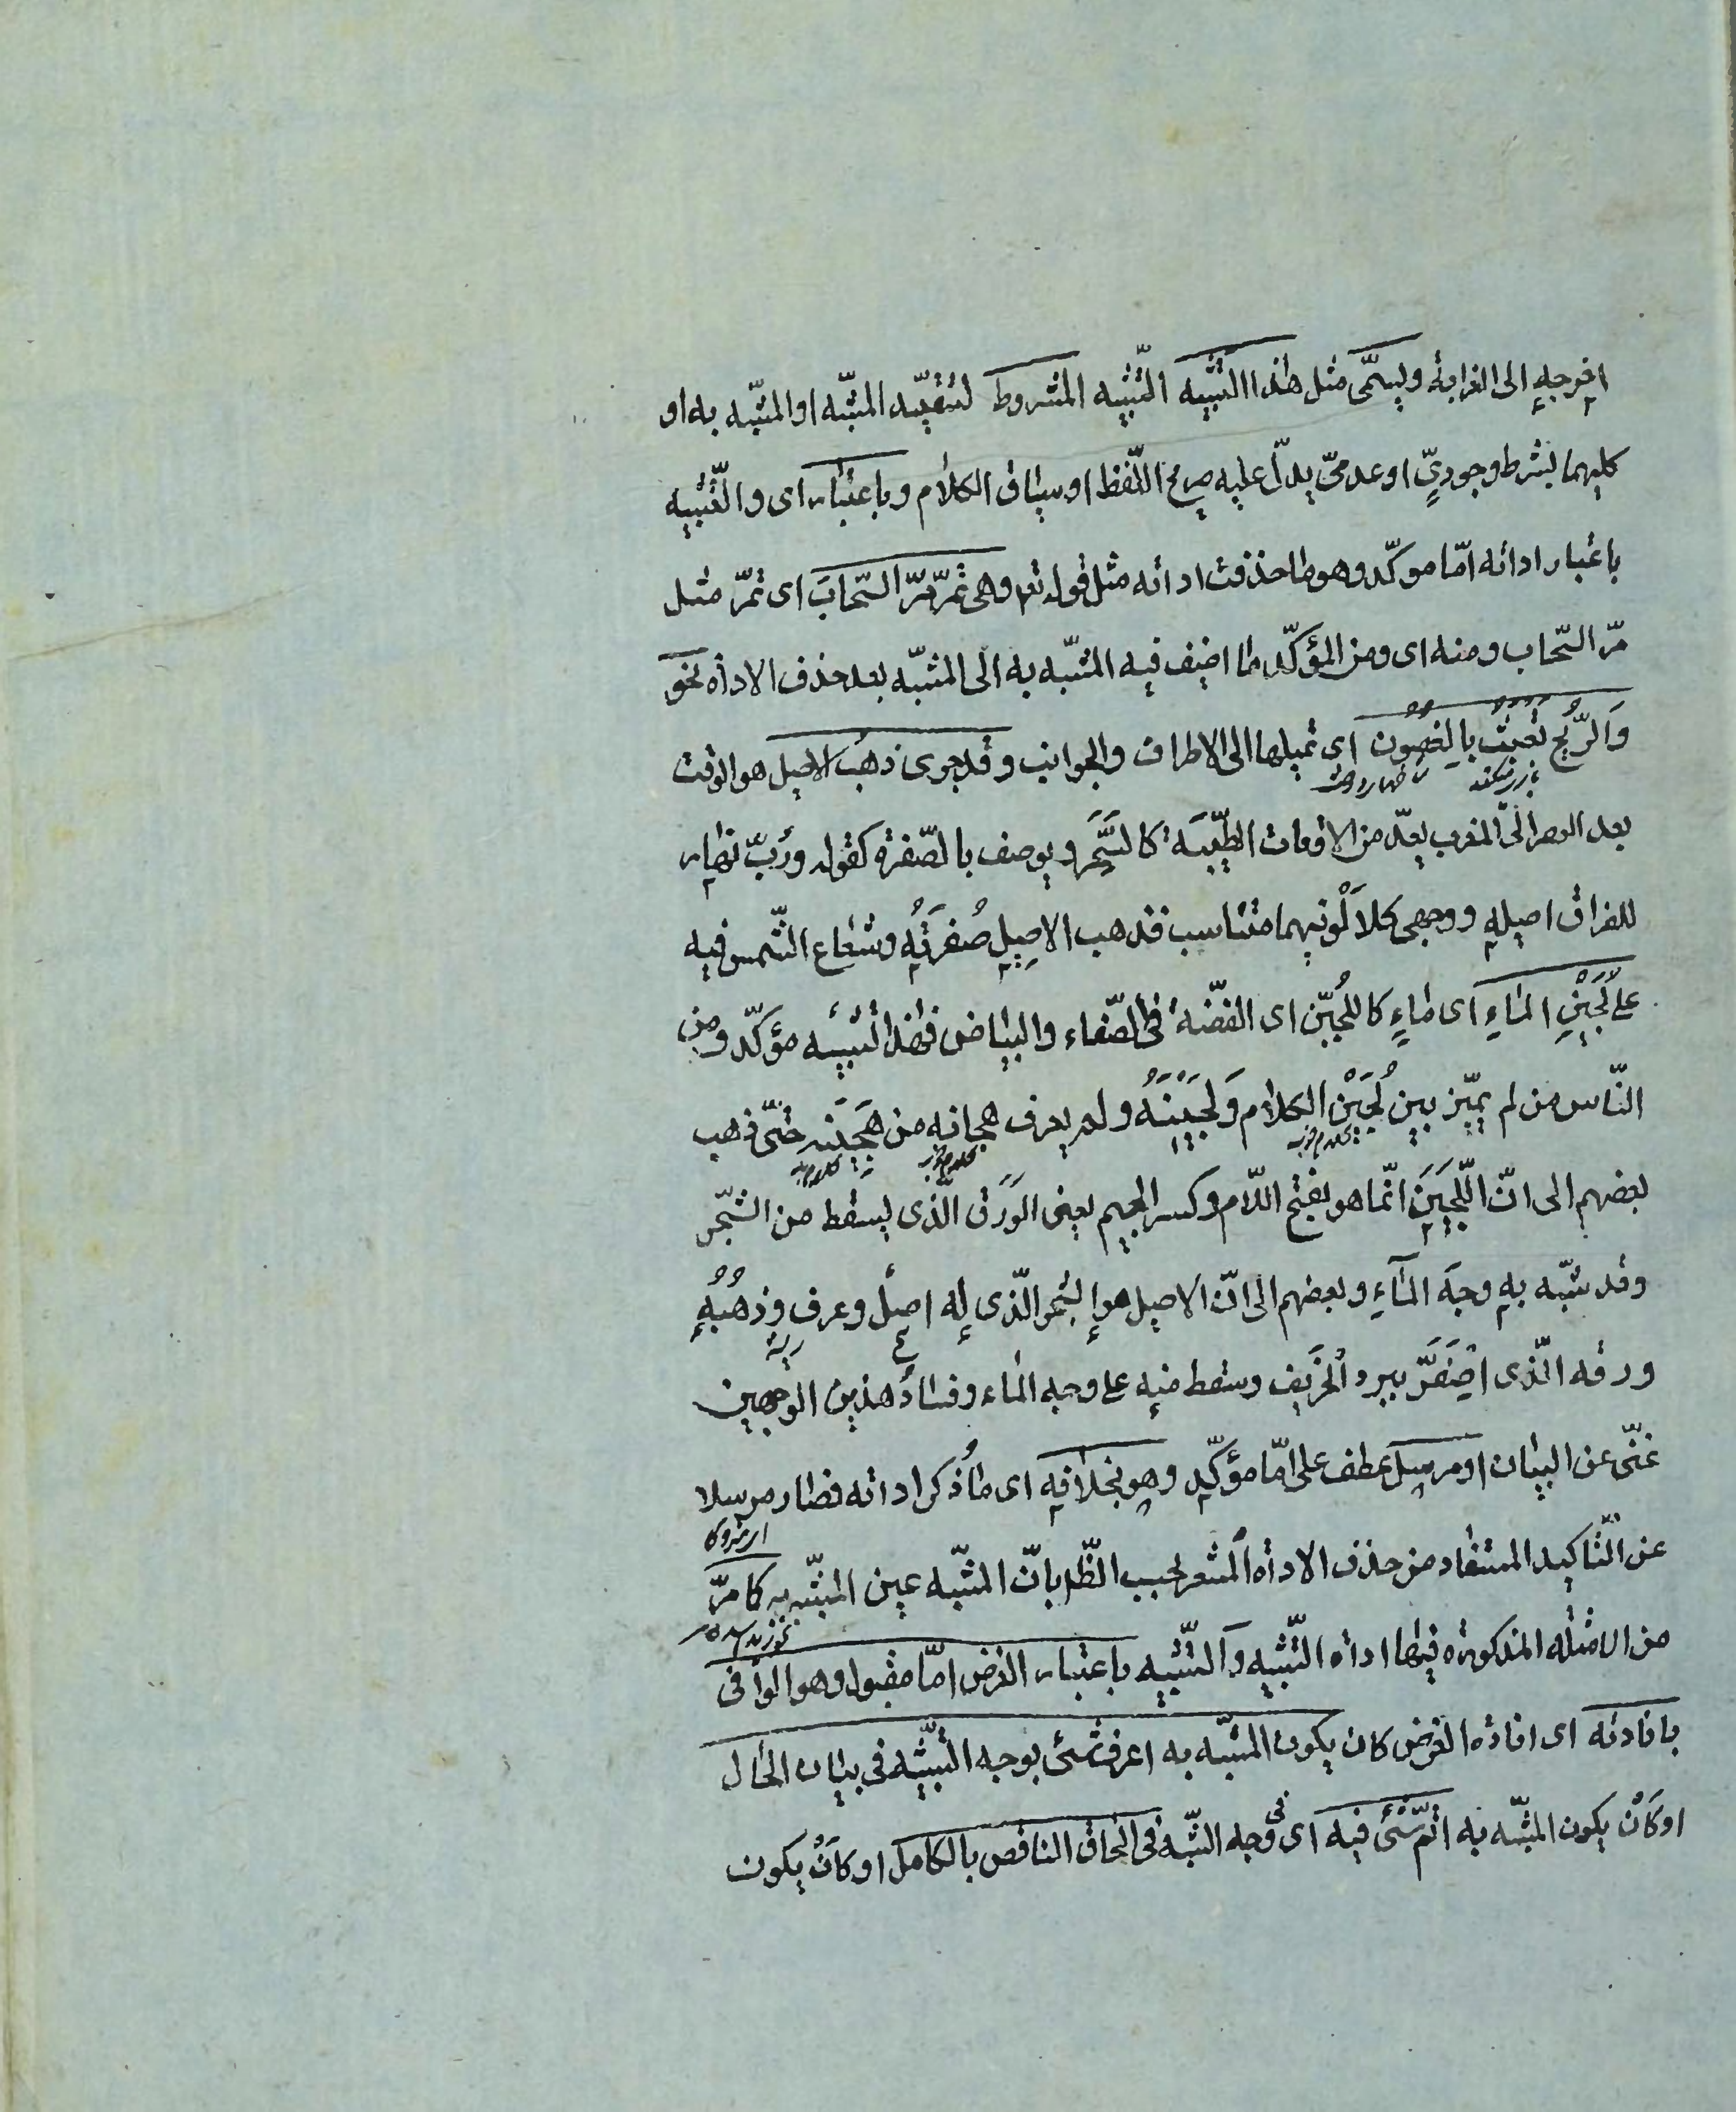 اخرجه الى الغرابة ويسمّى مثل هذا التشبيه التشبيه المشروط لتقييد المشبّه او المشبّه به او
كليهما بشرط وجوديّ او عدمىّ يدلّ عليه صريح اللّفظ او سياق الكلام وباعتبار اى والتّشبيه
باعتبار اداته امّا موكّد وهو ما حذفت اداته مثل قوله تعم وهى تمرّ مرّ السّحاب اى تمرّ مثل
مرّ السّحاب ومنه اى ومن المؤكّد ما اضيف فيه المشبّه به الى المشبّه بعد حذف الاداة نحو
وَالرّيحُ تَعبَثُ بِالغُصُونِ اى تميلها الى الاطراف والجوانب وقد جرى ذهب الاصيل هو الوقت
بازى ميكند شاخهاء درخت
بعد العصر الى المغرب يعدّ من الاوقات الطّيّبة كالسَّحَر ويوصف بالصّفرة كقوله ورُبّ نهار
للفراق اصيله ووجهى كلا لَوْنيهما متناسب فذهب الاصيل صُفرَتُه وشعاع الشّمس فيه
على لُجَيْنِ المَاءِ اى ماءٍ كاللُجَيْن اى الفضّة فى الصّفاء والبياض فهذا تشبيه مؤكّد ومن
النّاس من لم يميّز بين لُجَيْن الكلام وَلَجِيْنِه ولم يعرف هجانه من هَجِيْنه حتّى ذهب
كلام خوب كلام خوب كلام بد
بعضهم الى انّ اللَّجِيَن انّما هو بفتح اللّام وكسر الجيم يعنى الوَرَق الّذى يسقط من الشّجر
وقد شبّه به وجه المَاءِ وبعضهم الى انّ الاصيل هو الشجر الّذى له اصل وعرق وذهَبُهُ
ريشه
ورقه الّذى اصْفَرَّ ببرد الخَريف وسقط منه على وجه الماء وفسادُ هذين الوجهين
غنّى عن البيان او مرسل عطف على امّا مؤكّد وهو بخلافه اى ما ذُكر اداته فصار مرسلا
عن التّأكيد المستفاد من حذف الاداة المُشعر بحسب الظّ بانّ المشبّه عين المشبّه به كما مرّ
من الامثلة المذكورة فيها اداة التّشبيه وَالتّشبيه باعتبار الغرض امّا مقبول وهو الوافى
بافادته اى افادة الغرض كان يكون المشبّه به اعرف شئ بوجه التّشبيه فى بيان الحال
او كَانْ يكون المشبّه به اتمّ شئ فيه اى فى وجه الشّبه فى الحاق الناقص بالكامل او كَانْ يكون